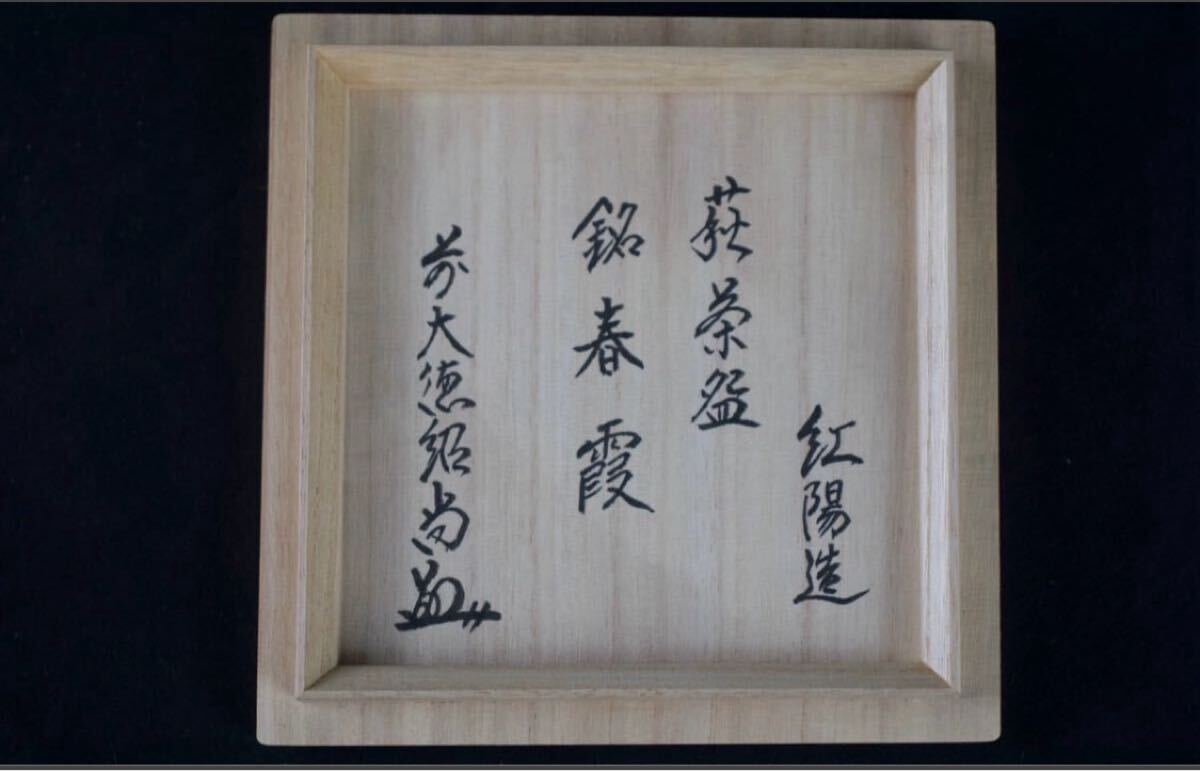 紅陽造
萩茶盌
銘春霞
前大徳紹尚